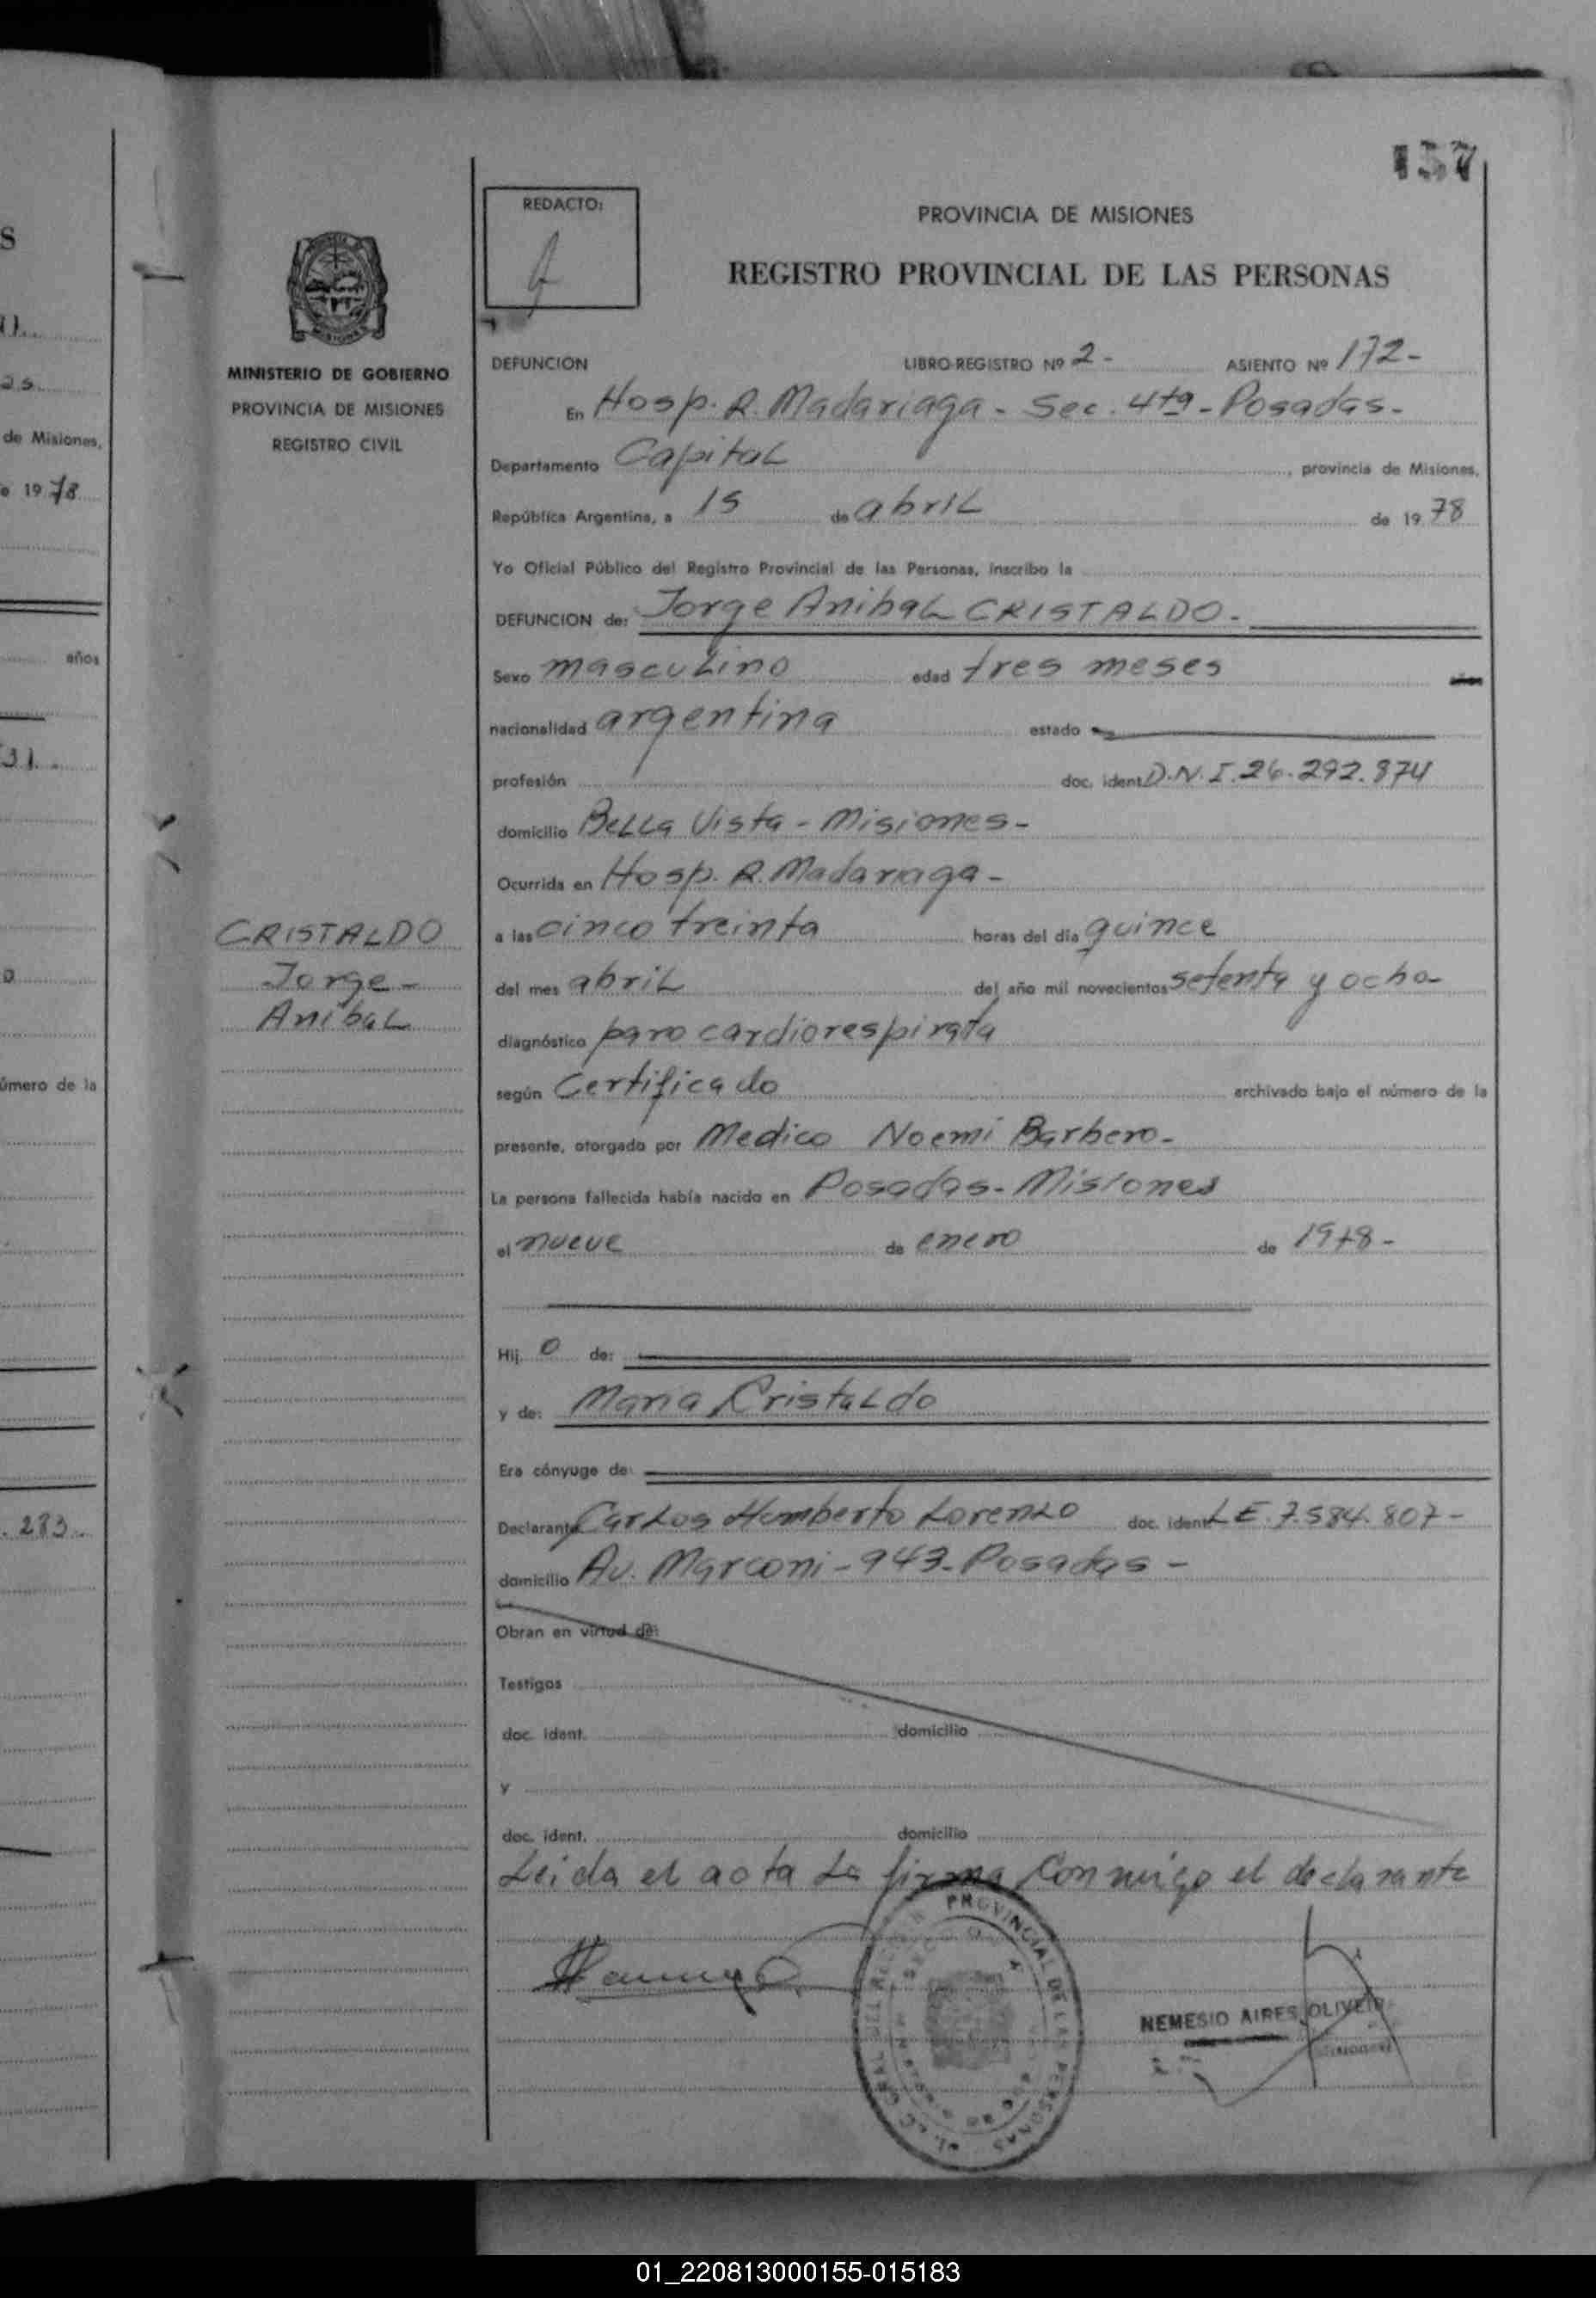 157
REDACTO:
PROVINCIA DE MISIONES
REGISTRO PROVINCIAL DE LAS PERSONAS
MINISTERIO DE GOBIERNO
PROVINCIA DE MISIONES
REGISTRO CIVIL
DEFUNCION LIBRO-REGISTRO Nº 2- ASIENTO Nº 172-
En Hosp. R. Madariaga - Sec. 4ta - Posadas-
Departamento Capital, provincia de Misiones,
República Argentina, a 15 de abril de 1978
Yo Oficial Público del Registro Provincial de las Personas, inscribo la
DEFUNCION de: Jorge Anibal CRISTALDO-
Sexo masculino edad tres meses
nacionalidad argentina estado
profesión doc. ident. D.N.I. 26.292.874
domicilio Bella Vista - Misiones-
Ocurrida en Hosp. R. Madariaga-
CRISTALDO
Jorge-
Anibal
a las cinco treinta horas del día quince
del mes abril del año mil novecientos setenta y ocho-
diagnóstico paro cardiorespirata
según Certificado archivado bajo el número de la
presente, otorgado por Medico Noemi Barbero-
La persona fallecida había nacido en Posadas- Misiones
el nueve de enero de 1978-
Hij o de:
y de: Maria Cristaldo
Era cónyuge de:
Declarante Carlos Humberto Lorenzo doc. ident. LE. 7.584.807-
domicilio Av. Marconi - 943- Posadas-
Obran en virtud de:
Testigos
doc. ident. domicilio
y
doc. ident. domicilio
Leida el acta la firma conmigo el declarante
PROVINCIAL DE LAS PERSONAS
NEMESIO AIRES OLIVEIR
S
as
de Misiones,
1978
años
31.
úmero de la
. 283
01_220813000155-015183